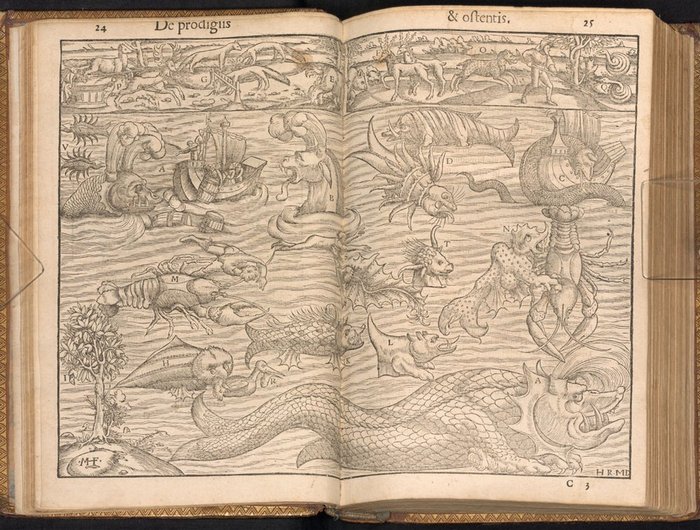 24 De prodigiis
& ostentis. 25
P G E O
V
A
B
D
C
T
N
M
L
H
R
I
A
MF
HRMD
C 3